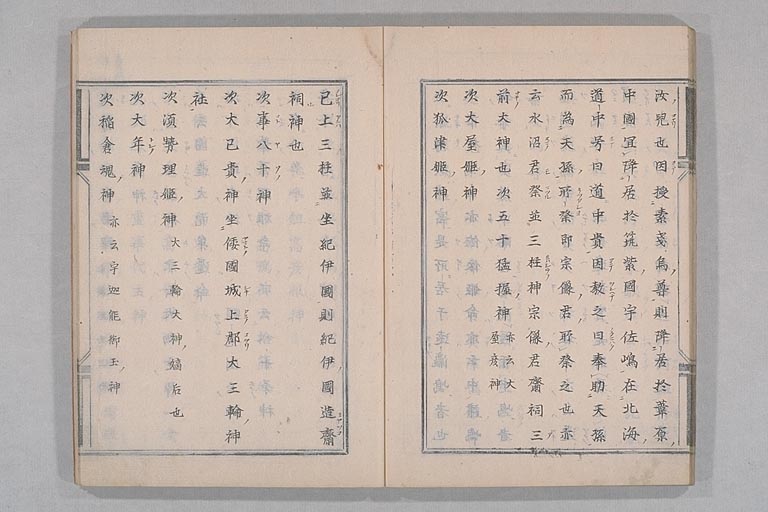 汝兒也因授素戔烏尊則降居於葦原
中國宜降居於筑紫國宇佐嶋在北海
道中号曰道中貴因教之曰奉助天孫
而為天孫所祭即宗像君所祭之也亦
云水沼君祭並三柱神宗像君齋祠三
前大神也次五十猛握神亦云大屋彦神
次大屋姫神
次抓津姫神
已上三柱並坐紀伊國則紀伊國造齋
祠神也
次事八十神
次大己貴神坐倭國城上郡大三輪神
社
次須勢理姫神大三輪大神嫡后也
次大年神
次稲倉魂神亦云宇迦能御玉神